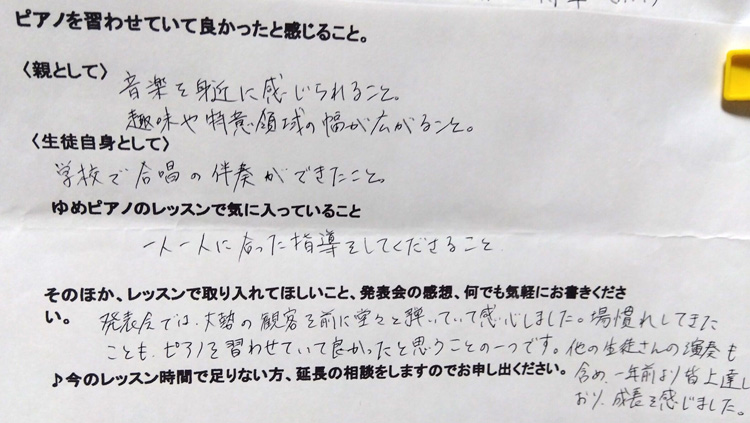 ピアノを習わせていて良かったと感じること。
〈親として〉
音楽を身近に感じられること。
趣味や特意領域の幅が広がること。
〈生徒自身として〉
学校で合唱の伴奏ができたこと。
ゆめピアノのレッスンで気に入っていること
一人一人に合った指導をしてくださること
そのほか、レッスンで取り入れてほしいこと、発表会の感想、何でも気軽にお書きくださ
い。
発表会では、大勢の観客を前に堂々と弾いていて感心しました。場慣れしてきた
ことも、ピアノを習わせていて良かったと思うことの一つです。他の生徒さんの演奏も
含め、一年前より皆上達し
ており、成長を感じました。
♪今のレッスン時間で足りない方、延長の相談をしますのでお申し出ください。